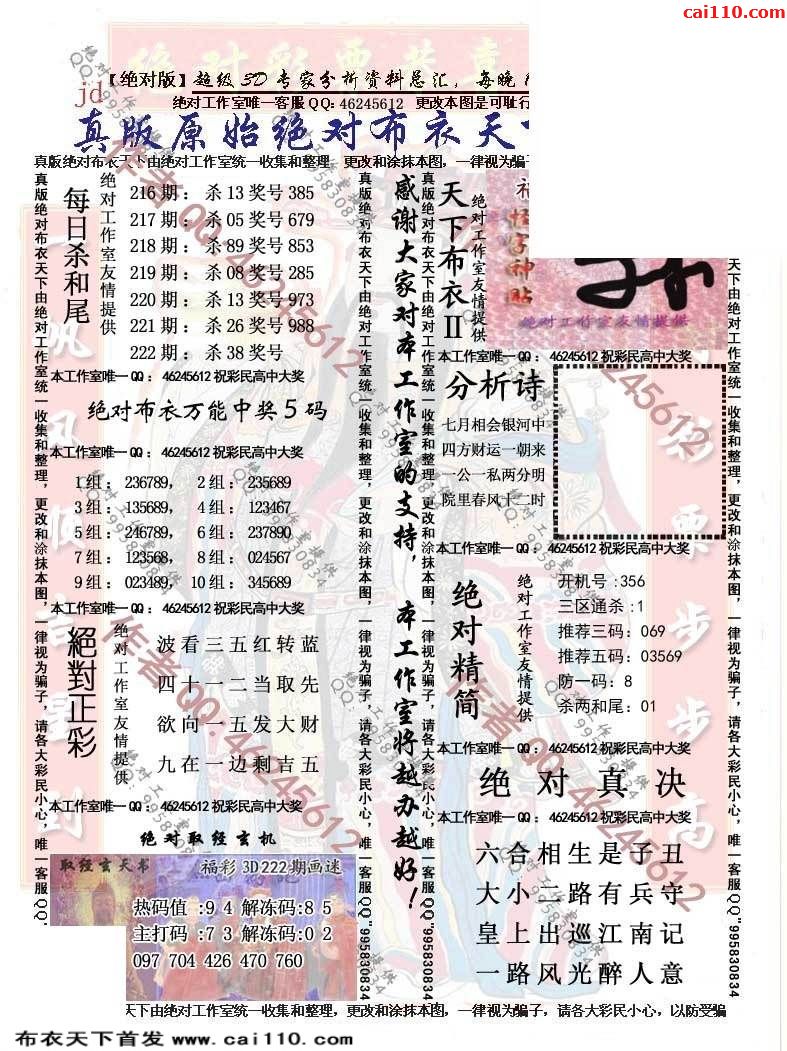 cai110.com
【绝对版】超级3D专家分析资料总汇，每晚
jd
绝对工作室唯一客服QQ：46245612 更改本图是可耻行
真版原始绝对布衣天
真版绝对布衣天下由绝对工作室统一收集和整理，更改和涂抹本图，一律视为骗
每日杀和尾
绝对工作室友情提供
216期：杀13奖号385
217期：杀05奖号679
218期：杀89奖号853
219期：杀08奖号285
220期：杀13奖号973
221期：杀26奖号988
222期：杀38奖号
本工作室唯一QQ：46245612祝彩民高中大奖
绝对布衣万能中奖5码
本工作室唯一QQ：46245612祝彩民高中大奖
1组：236789，2组：235689
3组：135689，4组：123467
5组：246789，6组：237890
7组：123568，8组：024567
9组：023489，10组：345689
本工作室唯一QQ：46245612祝彩民高中大奖
絕對正彩
绝对工作室友情提供
波看三五红转蓝
四十一二当取先
欲向一五发大财
九在一边剩吉五
本工作室唯一QQ：46245612祝彩民高中大奖
绝对取经玄机
取经玄天书 福彩3D222期画迷
热码值:94解冻码:85
主打码:73解冻码:02
097 704 426 470 760
真版绝对布衣天下由绝对工作室统一收集和整理，更改和涂抹本图，一律视为骗子，请各大彩民小心，唯一客服QQ"995830834
感谢大家对本工作室的支持，本工作室将越办越好！
天下布衣II
绝对工作室友情提供
怪字神貼
绝对工作室友情提供
本工作室唯一QQ：46245612祝彩民高中大奖
分析诗
七月相会银河中
四方财运一朝来
一公一私两分明
院里春风十二时
本工作室唯一QQ：46245612祝彩民高中大奖
绝对精简
绝对工作室友情提供
开机号:356
三区通杀:1
推荐三码：069
推荐五码：03569
防一码：8
杀两和尾：01
本工作室唯一QQ：46245612祝彩民高中大奖
绝对真决
本工作室唯一QQ：46245612祝彩民高中大奖
六合相生是子丑
大小二路有兵守
皇上出巡江南记
一路风光醉人意
天下由绝对工作室统一收集和整理，更改和涂抹本图，一律视为骗子，请各大彩民小心，以防受骗
作者QQ:46245612
绝对工作室提供
QQ:995830834
布衣天下首发 www.cai110.com